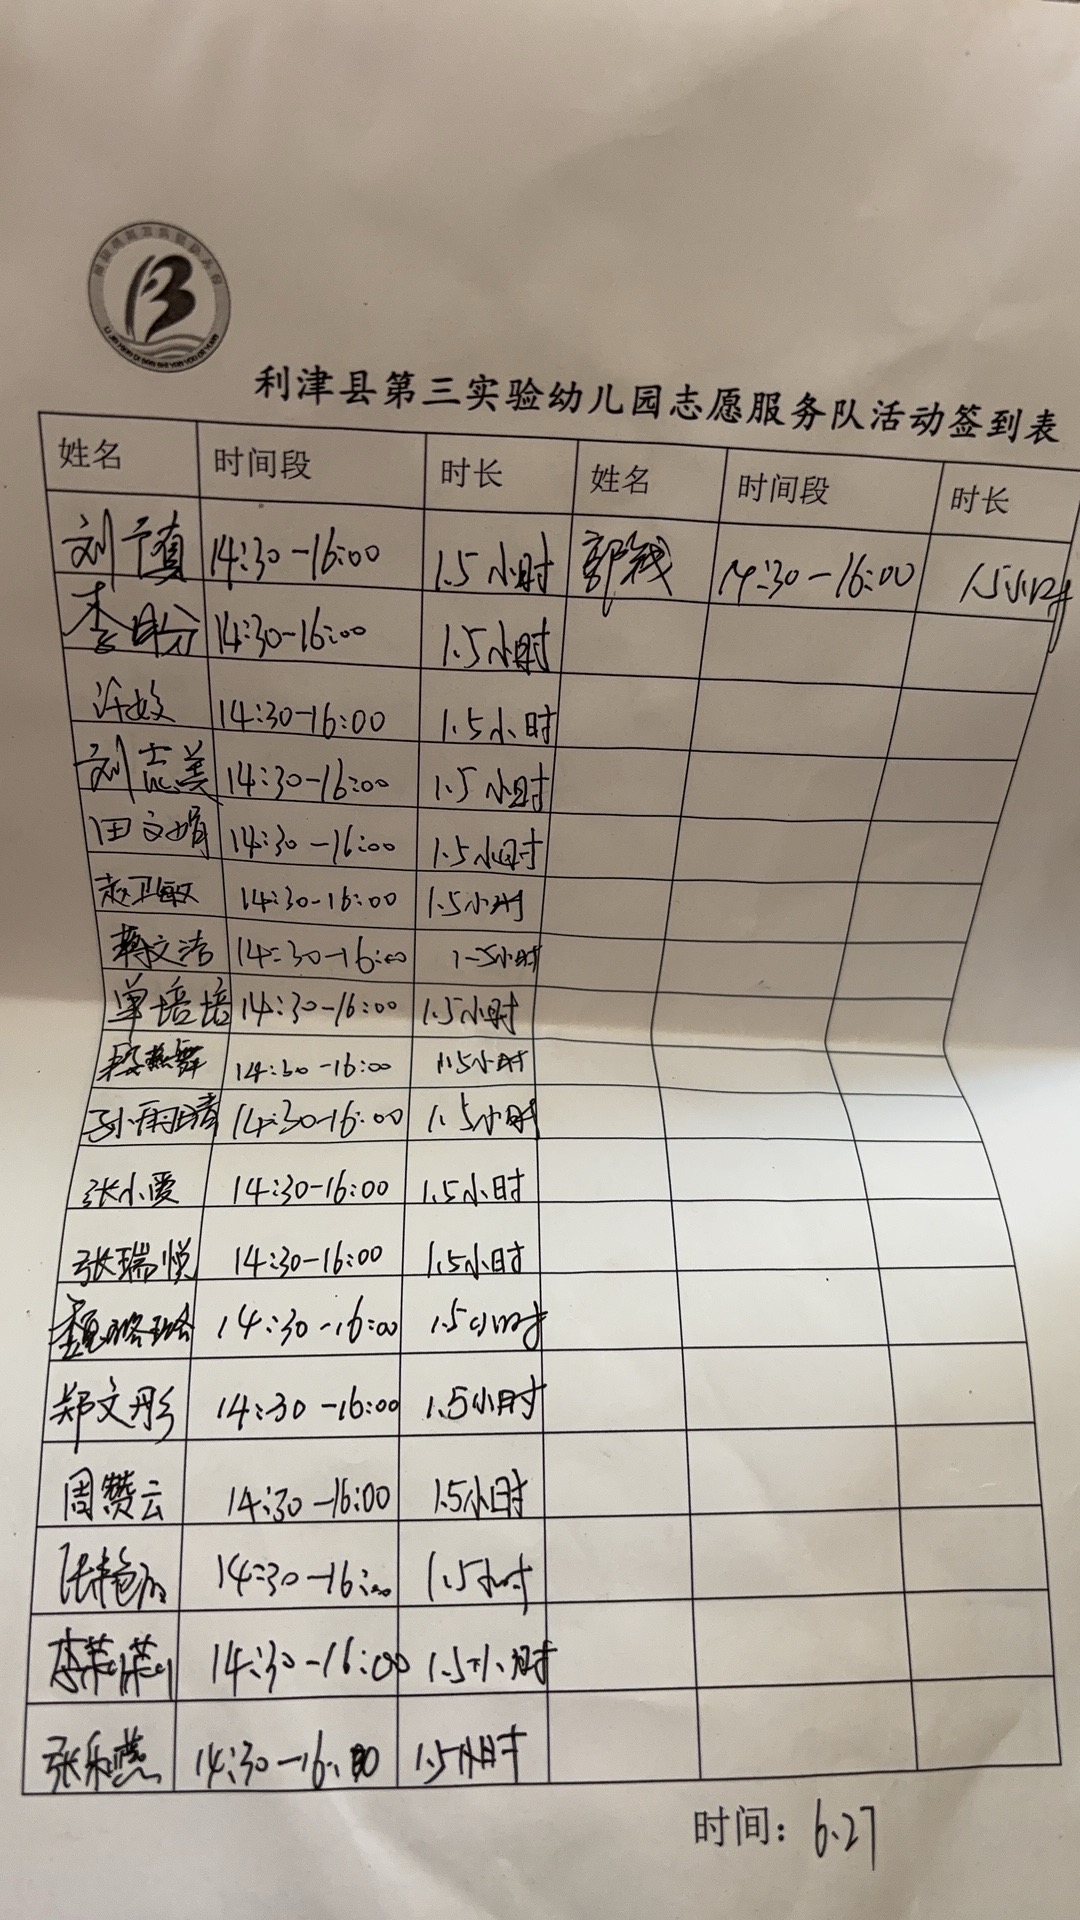 利津县第三实验幼儿园志愿服务队活动签到表
姓名 时间段 时长 姓名 时间段 时长
刘 14:30-16:00 1.5小时 郭 14:30-16:00 1.5小时
李 14:30-16:00 1.5小时
许 14:30-16:00 1.5小时
刘志美 14:30-16:00 1.5小时
田文娟 14:30-16:00 1.5小时
赵卫敏 14:30-16:00 1.5小时
蒋文洁 14:30-16:00 1.5小时
单培培 14:30-16:00 1.5小时
14:30-16:00 1.5小时
孙雨晴 14:30-16:00 1.5小时
张小爱 14:30-16:00 1.5小时
张瑞悦 14:30-16:00 1.5小时
魏璐璐 14:30-16:00 1.5小时
郑文彤 14:30-16:00 1.5小时
周赞云 14:30-16:00 1.5小时
张艳 14:30-16:00 1.5小时
李荣荣 14:30-16:00 1.5小时
张乐燕 14:30-16:00 1.5小时
时间：6.27